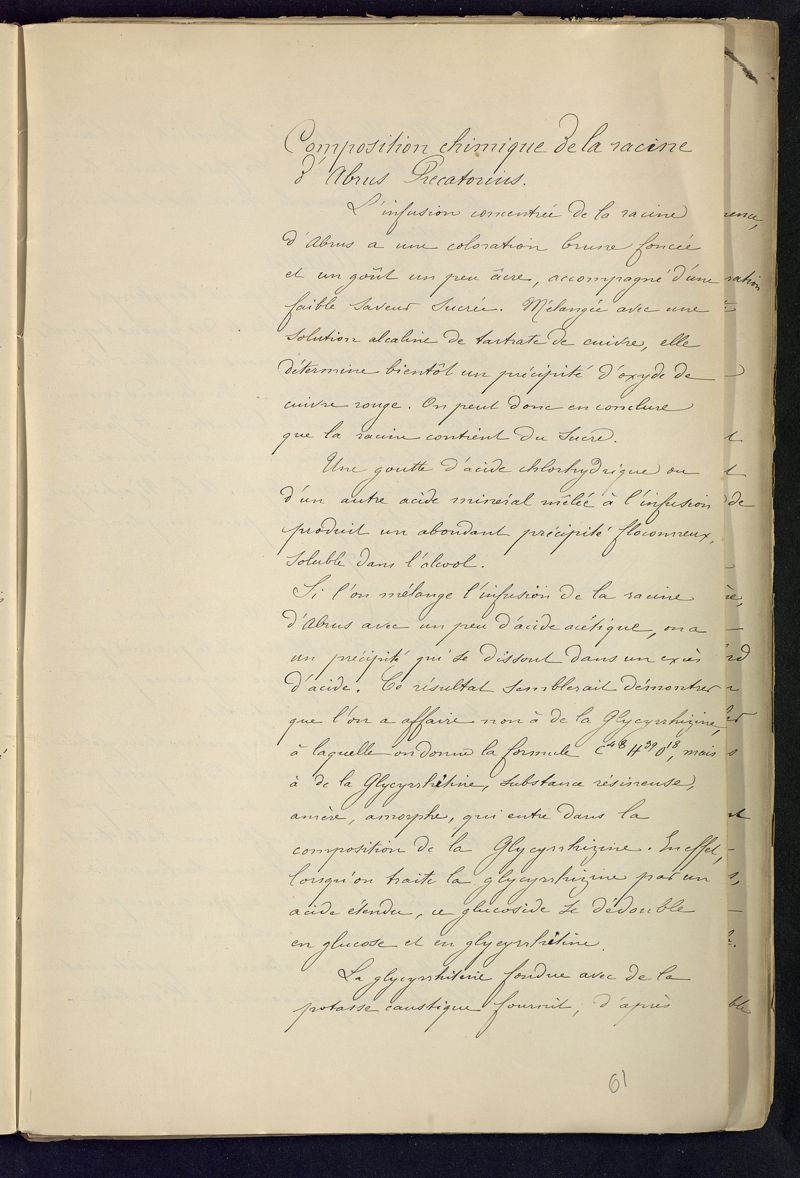 Composition chimique de la racine
d'Abrus Precatorius.
L'infusion concentrée de la racine
d'Abrus a une coloration brune foncée
et un goût un peu âcre, accompagné d'une
faible saveur sucrée. Mélangée avec une
solution alcaline de tartrate de cuivre, elle
détermine bientôt un précipité d'oxyde de
cuivre rouge. On peut donc en conclure
que la racine contient du sucre.
Une goutte d'acide chlorhydrique ou
d'un autre acide minéral mêlée à l'infusion
produit un abondant précipité floconneux,
soluble dans l'alcool.
Si l'on mélange l'infusion de la racine
d'Abrus avec un peu d'acide acétique, on a
un précipité qui se dissout dans un excès
d'acide. Ce résultat semblerait démontrer
que l'on a affaire non à de la Glycyrrhizine,
à laquelle on donne la formule C⁴⁸H³⁹O¹⁸, mais
à de la Glycyrrhitine, substance résineuse,
amère, amorphe, qui entre dans la
composition de la Glycyrrhizine. En effet,
lorsqu'on traite la glycyrrhizine par un
acide étendu, ce glucoside se dédouble
en glucose et en glycyrrhitine.
La glycyrrhitine fondue avec de la
potasse caustique fournit, d'après
61